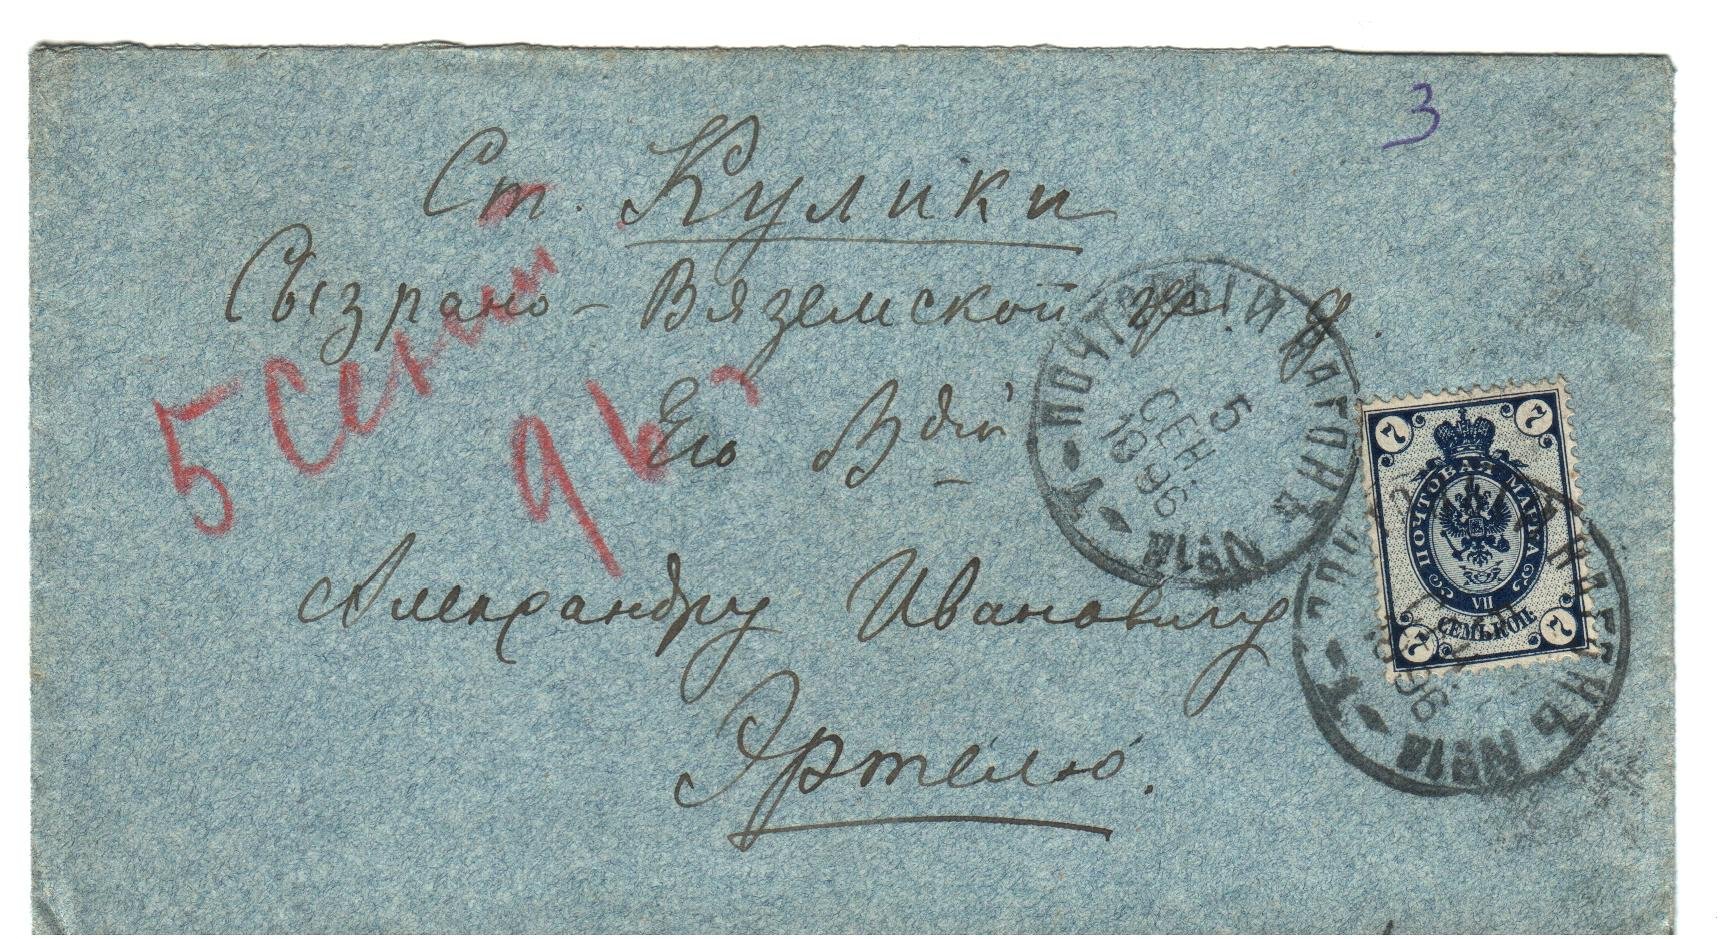 3
Ст. Кулики
Сызрано-Вяземской ж. д.
Его Вдію
Александру Ивановичу
Эртелю.
5 Сент
96 г
ПОЧТОВЫЙ ВАГОНЪ
5
СЕН.
1896
1
7 7
ПОЧТОВАЯ МАРКА
VII
СЕМЬ КОП.
7 7
ВАГОНЪ
1896
1